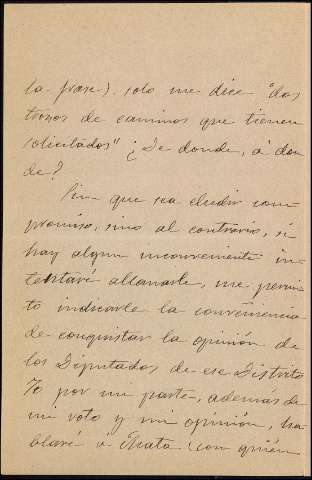 la frase), solo me dice "dos
trozos de caminos que tienen
solicitados" ¿De donde, á don
de?
Sin que sea eludir com-
promiso, sino al contrario, si
hay algun inconveniente in-
tentaré allanarle, me permi-
to indicarle la conveniencia
de conquistar la opinión de
los Diputados de ese Distrito
Yo por mi parte, ademas de
mi voto y mi opinión, ha-
blaré á (con quién